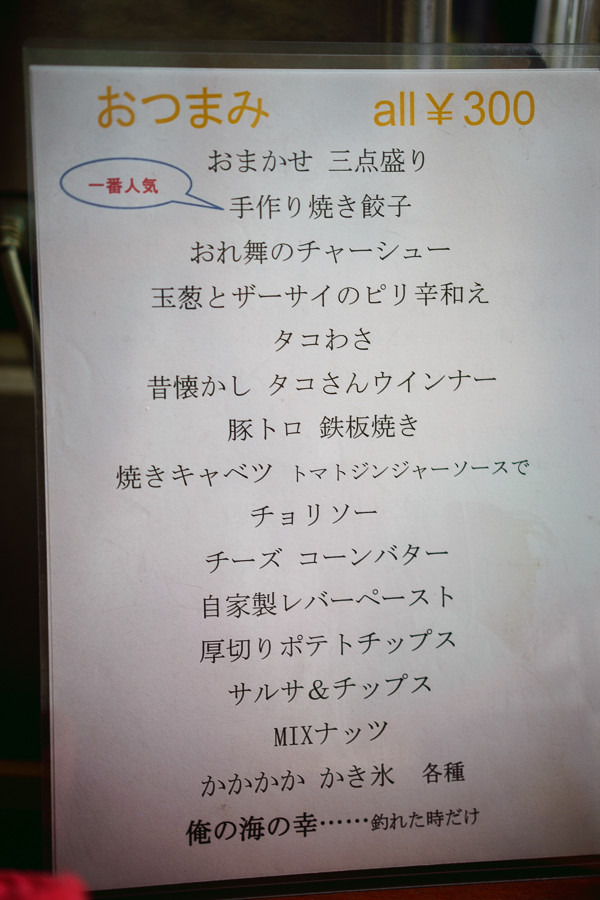 おつまみ all￥300
おまかせ 三点盛り
一番人気
手作り焼き餃子
おれ舞のチャーシュー
玉葱とザーサイのピリ辛和え
タコわさ
昔懐かし タコさんウインナー
豚トロ 鉄板焼き
焼きキャベツ トマトジンジャーソースで
チョリソー
チーズ コーンバター
自家製レバーペースト
厚切りポテトチップス
サルサ＆チップス
MIXナッツ
かかかか かき氷 各種
俺の海の幸……釣れた時だけ